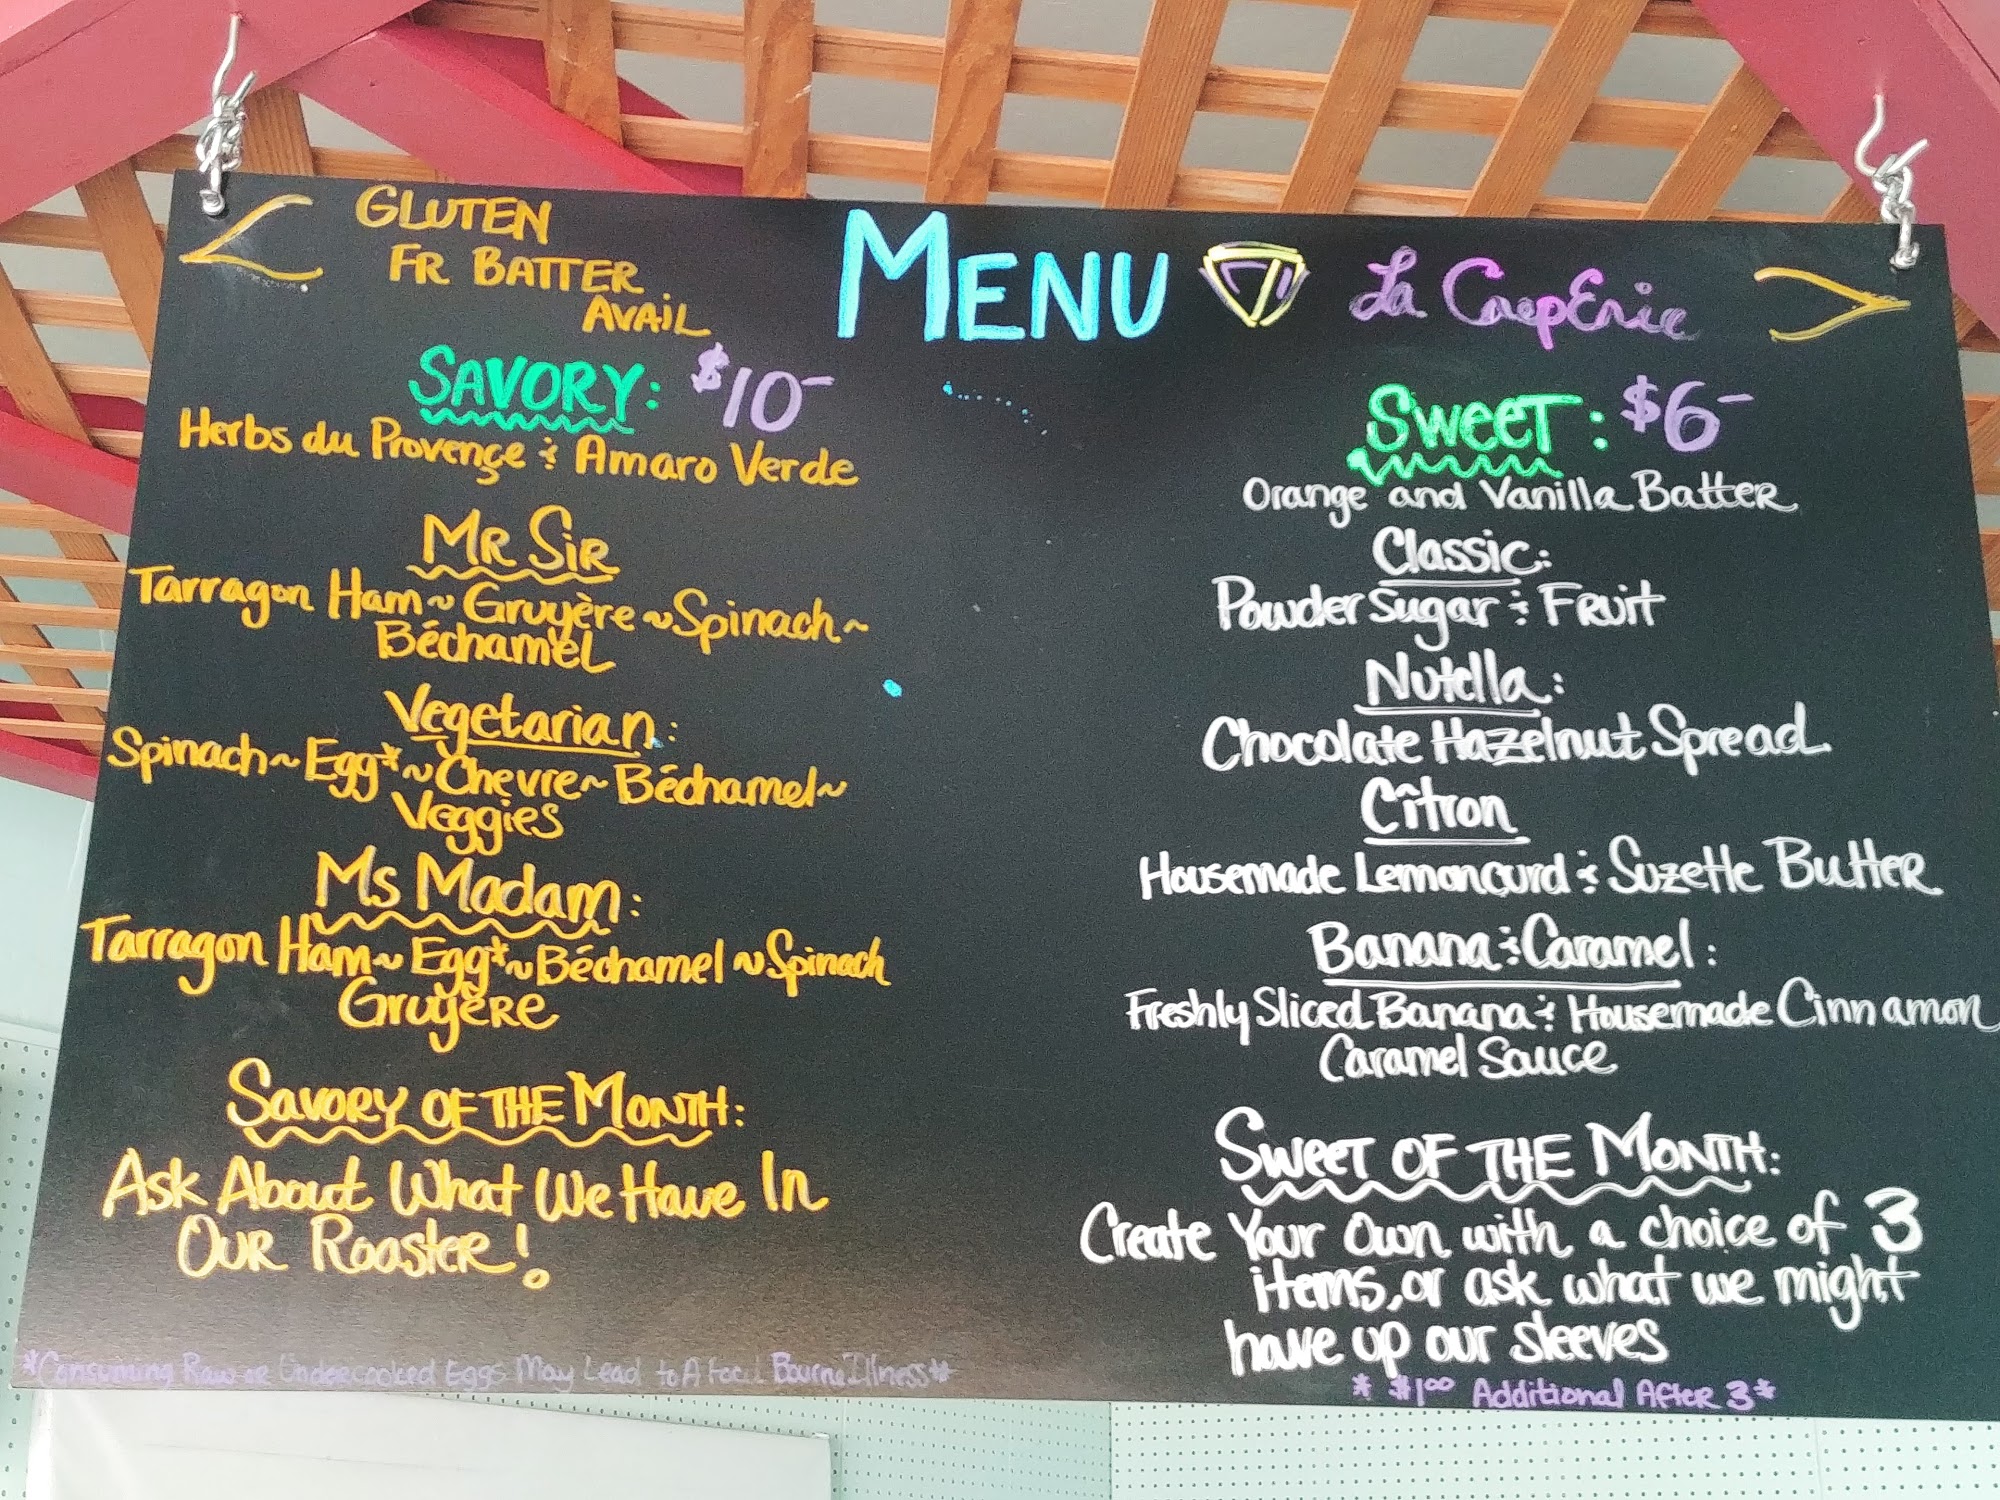 GLUTEN
FR BATTER
AVAIL
MENU
La CrepErie
SAVORY: $10-
Herbs du Provençe & Amaro Verde
MR SIR
Tarragon Ham~Gruyère~Spinach~
BéchamEL
Vegetarian:
Spinach~Egg*~Chevre~Béchamel~
VEggiES
Ms Madam:
Tarragon Ham~Egg*~Béchamel~Spinach
GruyèRE
SAVORY OF THE MONTH:
Ask About What We Have In
OUR Roaster!
*Consuming Raw or Undercooked Eggs May Lead to A Food Bourne Illness*
SWEET: $6-
Orange and Vanilla Batter
Classic:
Powder Sugar & Fruit
Nutella:
Chocolate Hazelnut Spread
Cîtron
Housemade Lemoncurd & Suzette Butter
Banana & Caramel:
Freshly Sliced Banana & Housemade Cinnamon
Caramel Sauce
SWEET OF THE MONTH:
Create Your Own with a choice of 3
items, or ask what we might
have up our sleeves
* $1.00 Additional After 3*